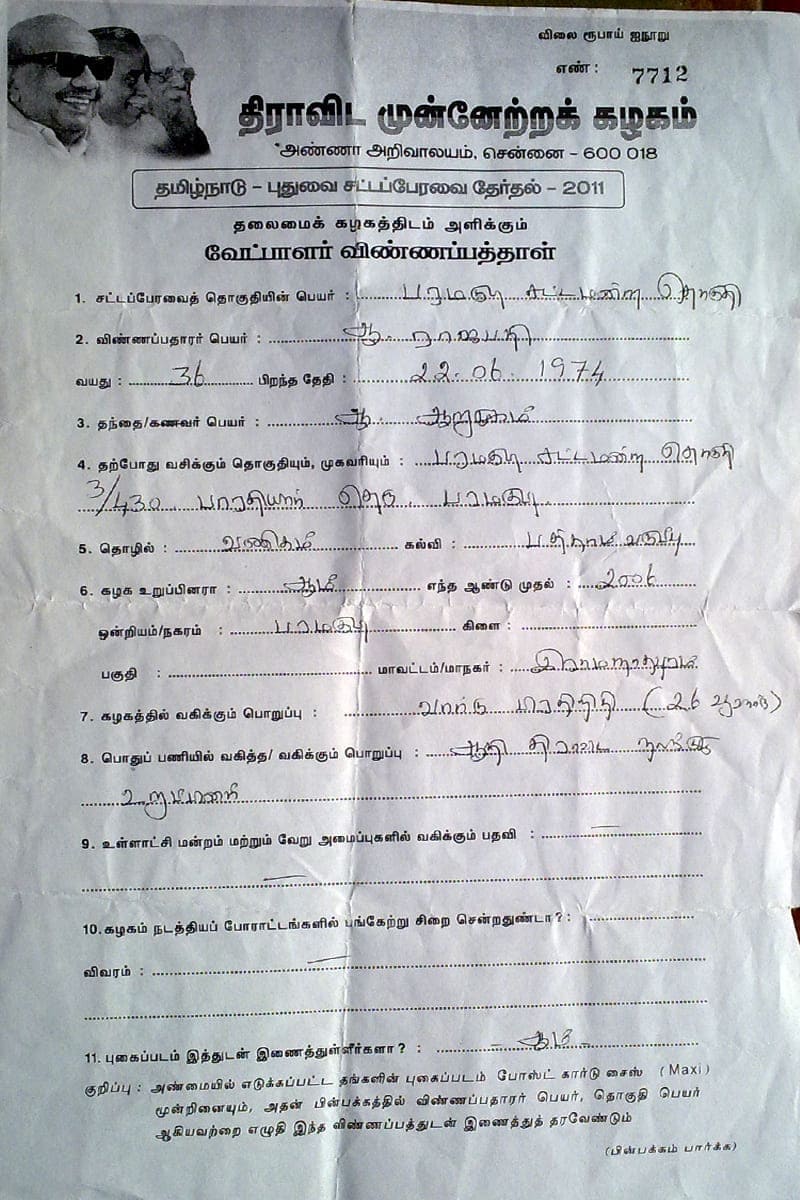 விலை ரூபாய் ஐநூறு
எண் : 7712
திராவிட முன்னேற்றக் கழகம்
"அண்ணா அறிவாலயம், சென்னை – 600 018
தமிழ்நாடு – புதுவை சட்டப்பேரவை தேர்தல் – 2011
தலைமைக் கழகத்திடம் அளிக்கும்
வேட்பாளர் விண்ணப்பத்தாள்
1. சட்டப்பேரவைத் தொகுதியின் பெயர் : பரமகுடி சட்டமன்ற தொகுதி
2. விண்ணப்பதாரர் பெயர் : ஆ.
வயது : 36 பிறந்த தேதி : 22.06.1974
3. தந்தை/கணவர் பெயர் : ஆறுமுகம்
4. தற்போது வசிக்கும் தொகுதியும், முகவரியும் : பரமகுடி சட்டமன்ற தொகுதி
3/430, பாரதியார் தெரு, பரமகுடி.
5. தொழில் : வணிகம் கல்வி : பத்தாம் வகுப்பு
6. கழக உறுப்பினரா : ஆம் எந்த ஆண்டு முதல் : 2006
ஒன்றியம்/நகரம் : பரமகுடி கிளை :
பகுதி : மாவட்டம்/மாநகர் : இராமனாதபுரம்
7. கழகத்தில் வகிக்கும் பொறுப்பு : வார்டு பிரதிநிதி (26
8. பொதுப் பணியில் வகித்த/ வகிக்கும் பொறுப்பு : ஆதி திராவிட நலக்குழு
உறுப்பினர்
9. உள்ளாட்சி மன்றம் மற்றும் வேறு அமைப்புகளில் வகிக்கும் பதவி : —
—
10. கழகம் நடத்தியப் போராட்டங்களில் பங்கேற்று சிறை சென்றதுண்டா? :
விவரம் : —
11. புகைப்படம் இத்துடன் இணைத்துள்ளீர்களா? : - ஆம் -
குறிப்பு : அண்மையில் எடுக்கப்பட்ட தங்களின் புகைப்படம் போஸ்ட் கார்டு சைஸ் (Maxi)
மூன்றினையும், அதன் பின்பக்கத்தில் விண்ணப்பதாரர் பெயர், தொகுதி பெயர்
ஆகியவற்றை எழுதி இந்த விண்ணப்பத்துடன் இணைத்துத் தரவேண்டும்
(பின்பக்கம் பார்க்க)